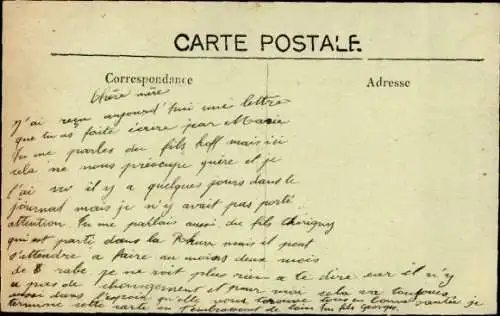 CARTE POSTALE
Correspondance
Adresse
Chère mère
J'ai reçu aujourd'hui une lettre
que tu as faite écrire par Marie
Tu me parles du fils Hoff mais ici
cela ne nous préocupe guère et je
l'ai vu il y a quelques jours dans le
journal mais je n'y avait pas porté
attention Tu me parlais aussi du fils
qui est parti dans la Rhur mais il peut
s'attendre a faire au moins deux mois
de rabe je ne voit plus rien a te dire car il n'y
a pas de changement et pour moi sela va toujours
aussi dans l'espoir qu'elle vous trouve tous en bonne santée je
termine cette carte en t'embrassant de loin ton fils Georges.